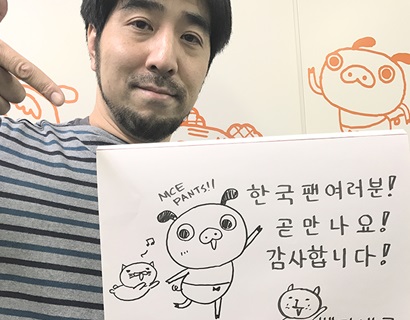 NICE
PANTS!!
한국팬여러분!
곧만나요!
감사합니다!